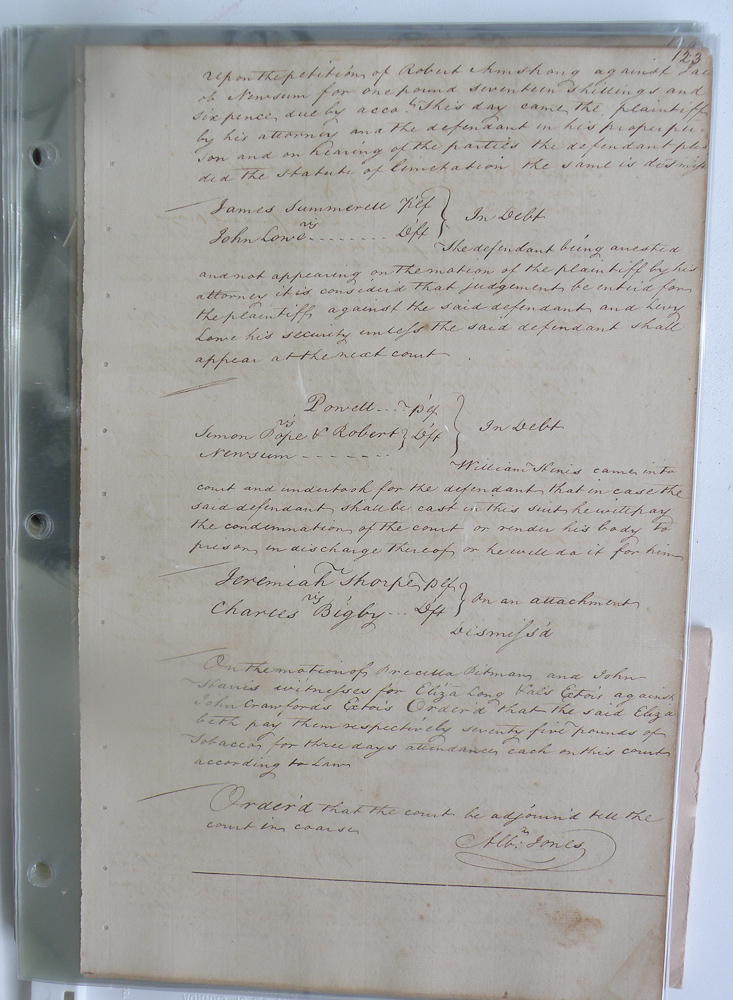 123
Upon the petition of Robert Armstrong against Jac
ob Newsum for one pound seventeen shillings and
six pence due by acco.t This day came the plaintiff
by his attorney and the defendant in his proper per-
son and on hearing of the parties the defendant plea
ded the Statute of limetation the same is dismiss
James Summerell Plef } In Debt
vs
John Lowe - - - - - - - - Dft
The defendant being arrested
and not appearing on the motion of the plaintiff by his
attorney it is considerd that judgement be enterd for
the plaintiff against the said defendant and Levy
Lowe his security unless the said defendant shall
appear at the next court
Powell - - - plf } In Debt
vs
Simon Pope & Robert } Dft
Newsum - - - - - - -
William Hines came into
court and undertook for the defendant that in case the
said defendant shall be cast in this suit he will pay
the condemnation of the court or render his body to
prison in discharge thereof or he will do it for him
Jeremiah Thorpe plf } On an attachment
vs
Charles Bigby - - - Dft
Dismiss'd
On the motion of Precilla Pitman and John
witnesses for Eliza Long &als Extois against
John Crawfords Extois Order'd that the said Eliza
beth pay them respectively seventy five pounds of
Tobacco for three days attendance each on this court
according to Law
Order'd that the court be adjourn'd till the
court in coarse
Alb:n Jones